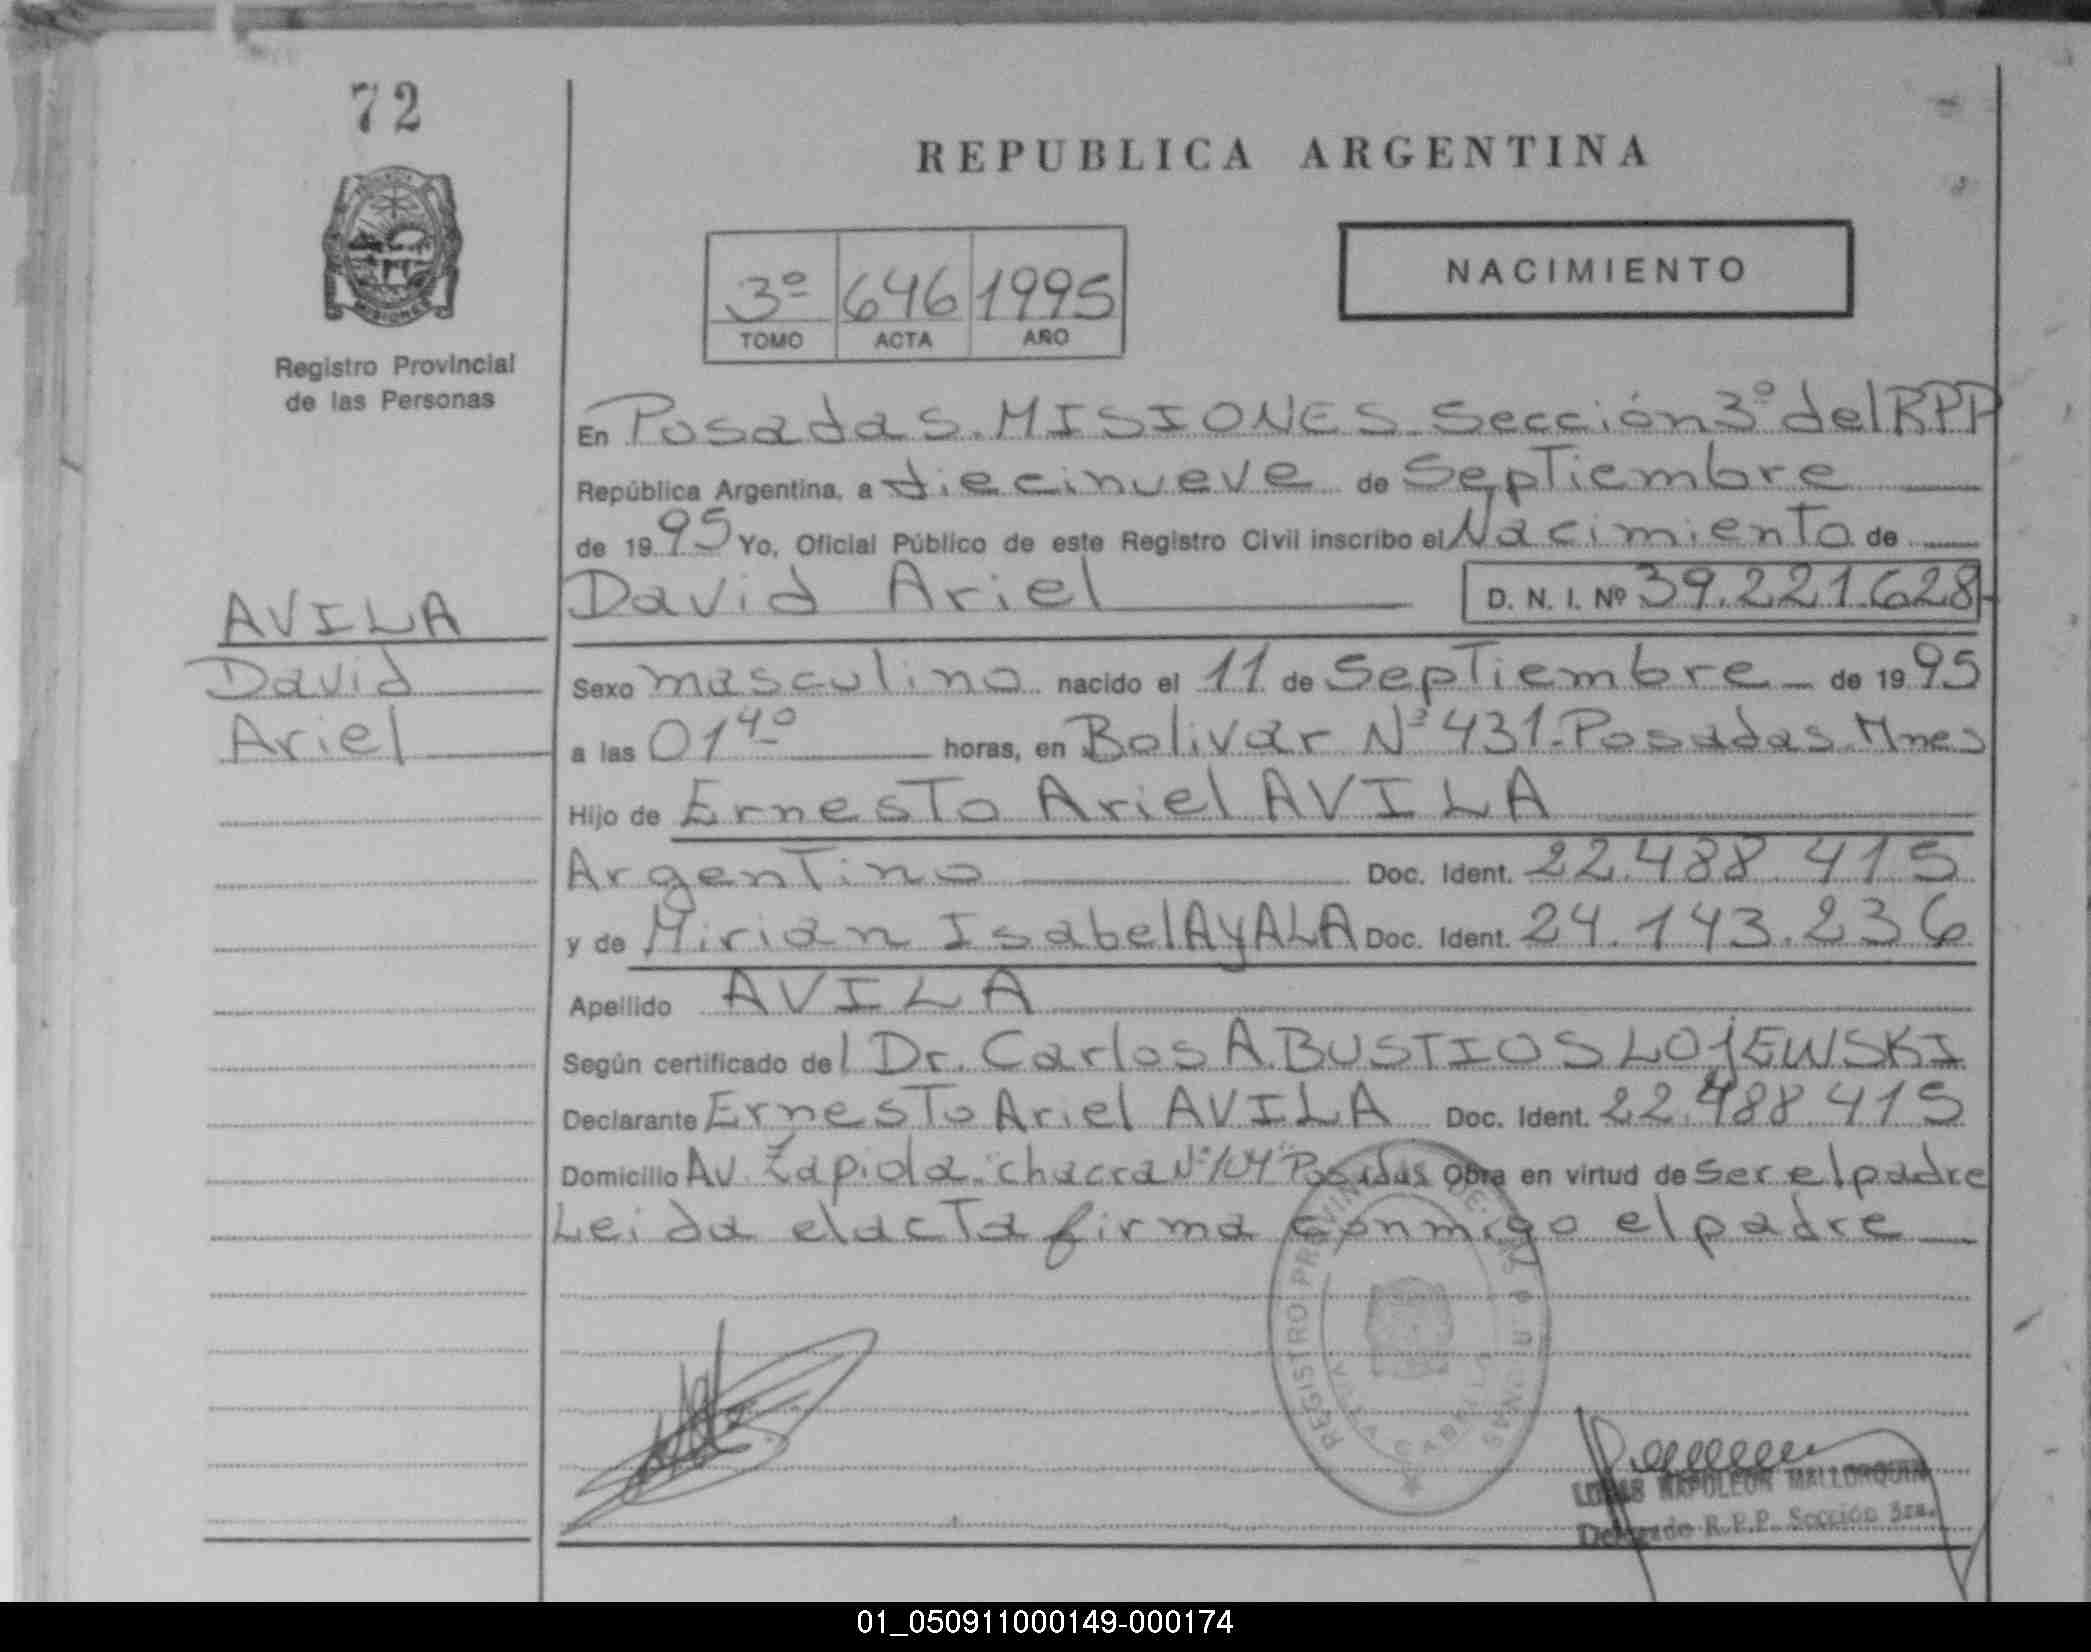 72
REPUBLICA ARGENTINA
NACIMIENTO
3º 646 1995
TOMO ACTA AÑO
Registro Provincial
de las Personas
En Posadas. MISIONES. Sección 3º del RPP
República Argentina, a diecinueve de Septiembre
de 1995 Yo, Oficial Público de este Registro Civil inscribo el Nacimiento de
David Ariel D. N. I. Nº 39.221.628
AVILA
David
Ariel
Sexo masculino nacido el 11 de Septiembre de 1995
a las 01 40 horas, en Bolivar Nº 431. Posadas. Mnes
Hijo de Ernesto Ariel AVILA
Argentino Doc. Ident. 22.488.415
y de Mirian Isabel AyALA Doc. Ident. 24.143.236
Apellido AVILA
Según certificado del Dr. Carlos A. BUSTIOS LOjEWSKI
Declarante Ernesto Ariel AVILA Doc. Ident. 22.488.415
Domicilio Av. Zapiola. "chacra Nº 104" Posadas Obra en virtud de ser el padre
Leida el acta firma conmigo el padre
REGISTRO PROVINCIAL DE
LUCAS NAPOLEON MALLORQUIN
Delegado R.P.P. Sección 3ra.
01_050911000149-000174